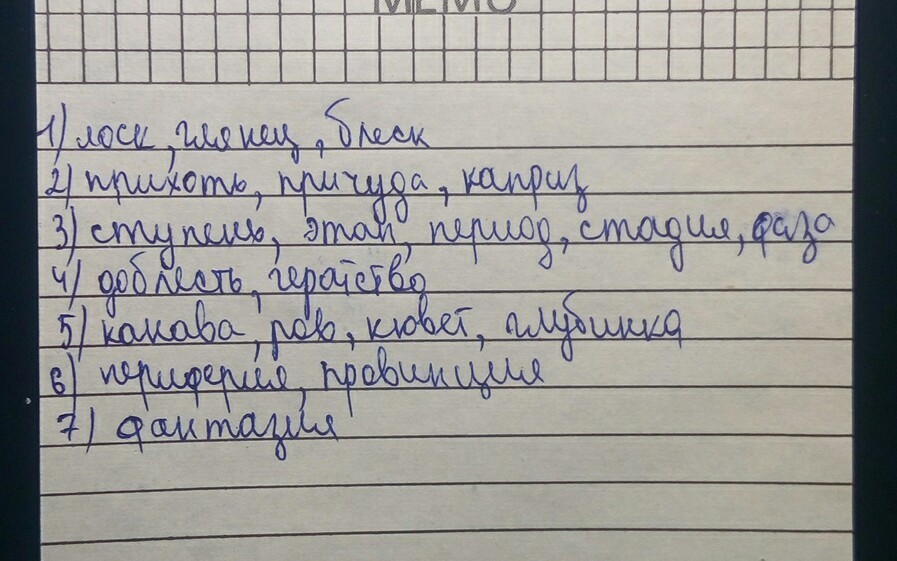 МЕМО
1) лоск, глянец, блеск
2) прихоть, причуда, каприз
3) ступень, этап, период, стадия, фаза
4) доблесть, геройство
5) канава, ров, кювет, глубинка
6) периферия, провинция
7) фантазия